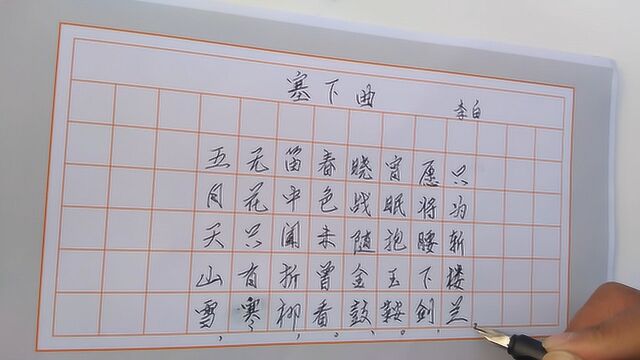 塞下曲
李白
五月天山雪，
无花只有寒。
笛中闻折柳，
春色未曾看。
晓战随金鼓，
宵眠抱玉鞍。
愿将腰下剑，
只为斩楼兰。